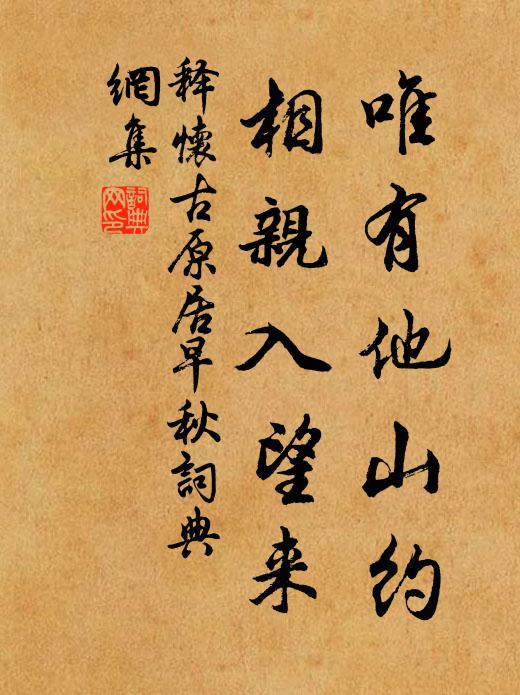 唯有他山约
相親入望来
释懷古原居早秋詞典
網集
詞典
网印